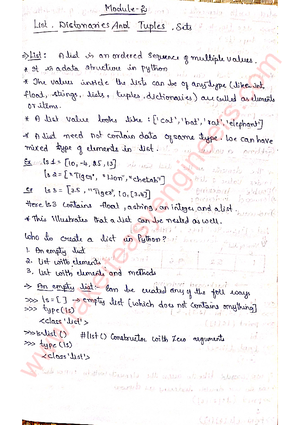 Module-2
List, Dictonaries And Tuples, Sets
⇒ List: A list is an ordered sequence of multiple values.
* It is a data structure in python
* The values inside the list can be of any type (like int,
float, strings, lists, tuples, dictionaries) are called as elements
or items.
* A list value looks like: ['cat', 'bat', 'rat', 'elephant']
* A list need not contain data of same type. We can have
mixed type of elements in list.
Ex ls1 = [10, -4, 25, 13]
ls2 = ["Tiger", "Lion", "cheetah"]
Ex ls3 = [3.5, "Tiger", 10, [3,4]]
Here ls3 contains float, a string, an integer and a list.
* This illustrates that a list can be nested as well.
Who to create a list in Python?
1. An empty list
2. List with elements
3. List with elements and methods
⇒ An empty list: Can be created any of the foll ways
>>> ls = [ ] → empty list [which does not contains anything]
>>> type(ls)
<class 'list'>
>>> ls = list() # list() Constructor with zero arguments
>>> type(ls)
<class 'list'>